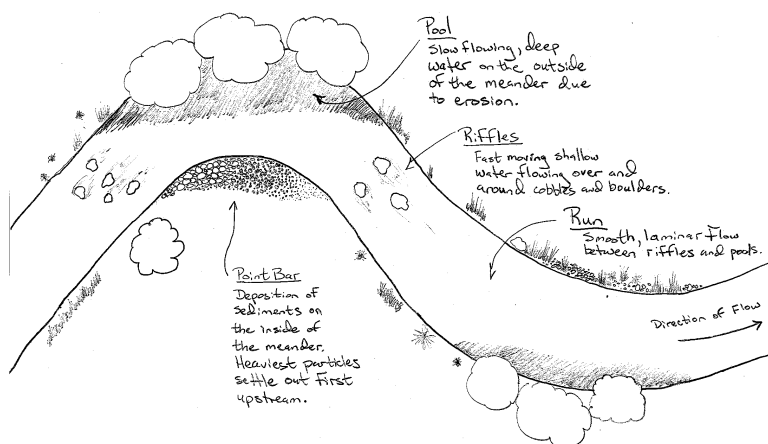 Pool
Slow flowing, deep
water on the outside
of the meander due
to erosion.
Riffles
Fast moving shallow
water flowing over and
around cobbles and boulders.
Run
Smooth, laminar flow
between riffles and pools.
Point Bar
Deposition of
sediments on
the inside of
the meander.
Heaviest particles
settle out first
upstream.
Direction of Flow